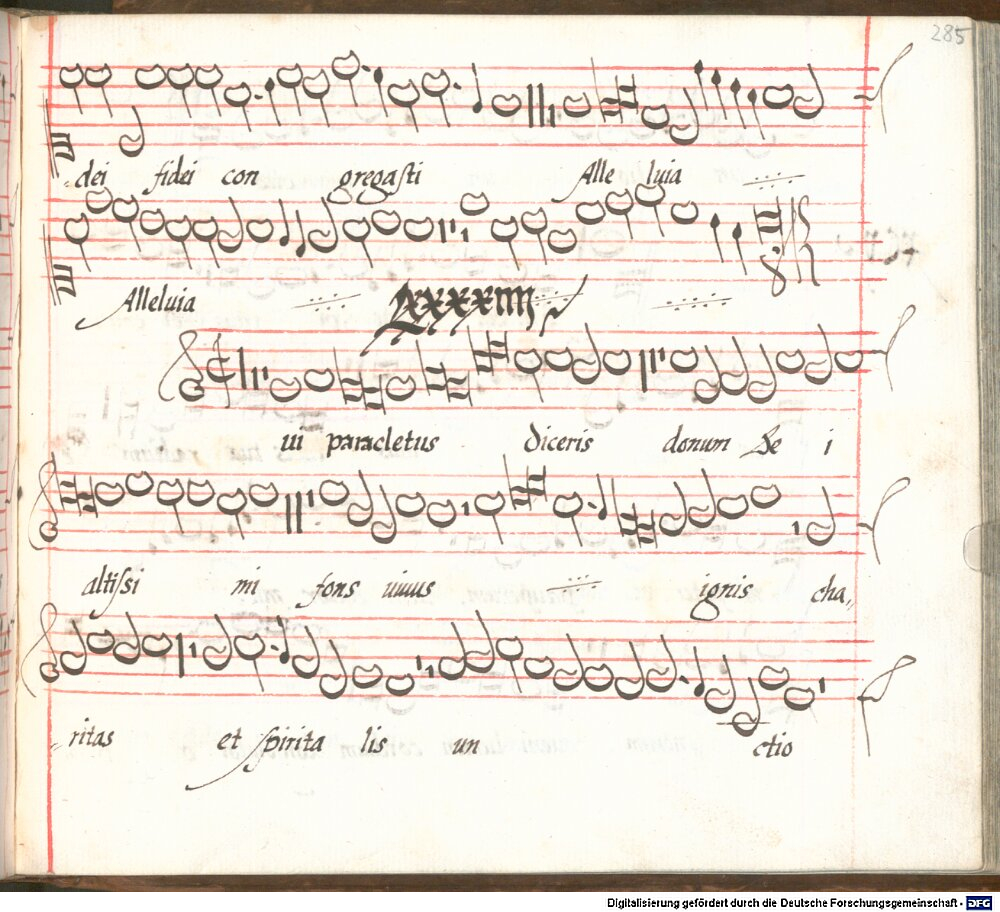 285
-dei fidei con gregasti Alle luia
Alleluia
LXXXXIIII
ui paracletus diceris donum De i
altissi mi fons uiuus ignis cha,,
-ritas et spirita lis un ctio
Digitalisierung gefördert durch die Deutsche Forschungsgemeinschaft - DFG